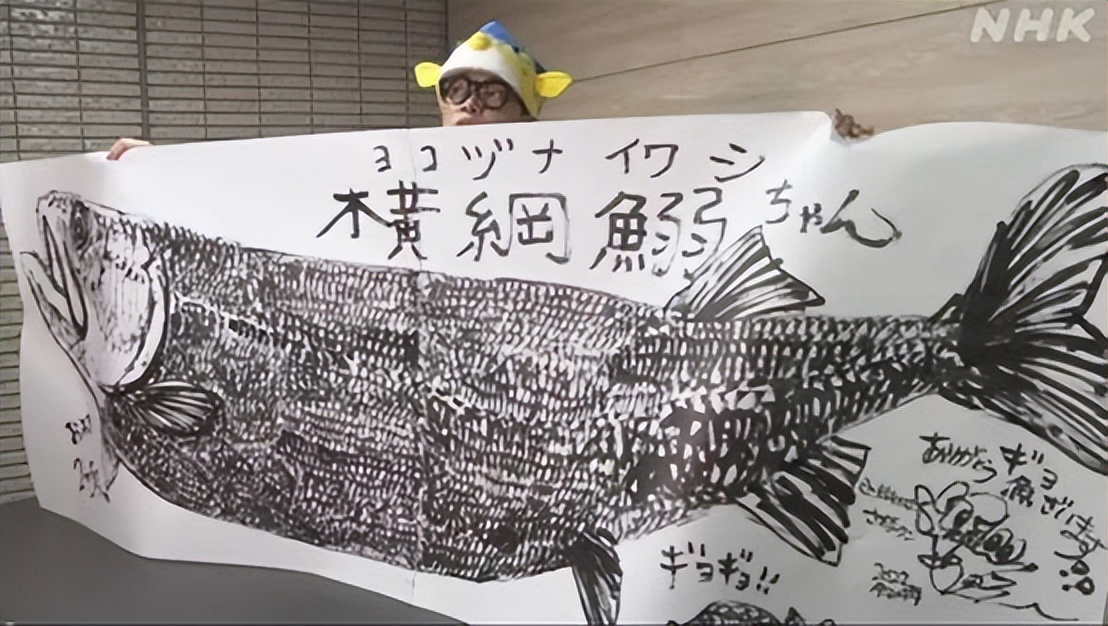 NHK
ヨコヅナイワシ
横綱鰯ちゃん
ギョギョ!!
ありがとう
ギョ
魚ざいます